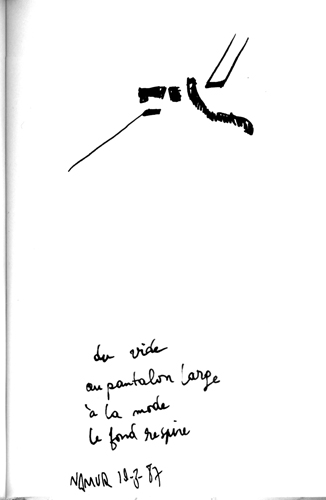 du vide
au pantalon large
à la mode
le fond respire
NAMUR 18-3-87